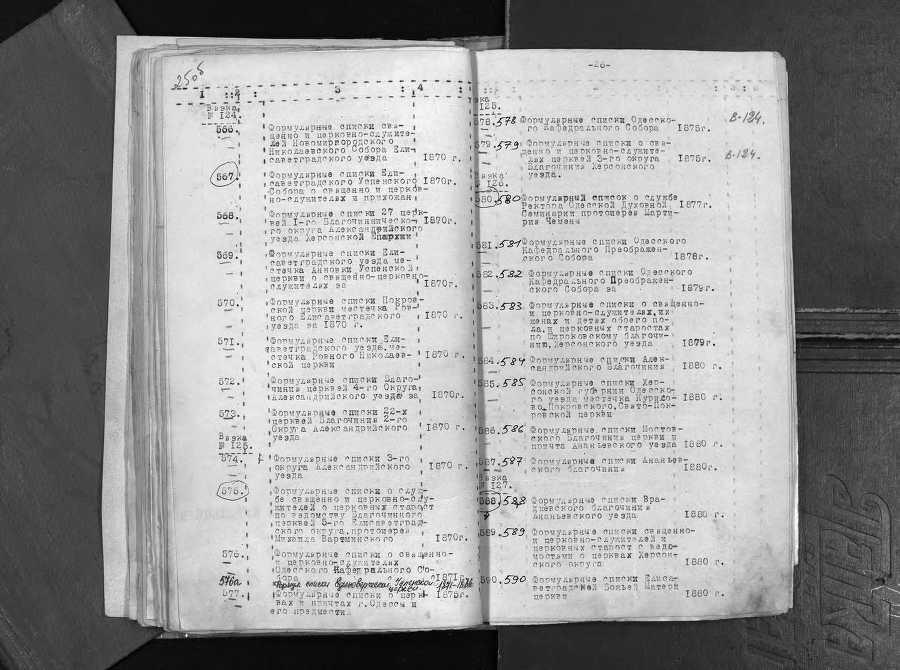 2505
I 2 3 4
Вязка
№ I24.
566. Формулярные списки свя-
щенно и церковно-служите-
лей Новомиргородского
Николаевского Собора Ели-
саветградского уезда 1870 г.
567. Формулярные списки Ели-
саветградского Успенского 1870г.
Собора о священно и церков-
но-служителях и прихожан
568. Формулярные списки 27 церк-
вей I-го Благочиннического 1870г.
округа Александрийского
уезда Херсонской Епархии
569. Формулярные списки Ели-
саветградского уезда ме-
стечка Анновки Успенской
церкви о священно-церковно-
служителях за 1870г.
570. Формулярные списки Покров-
ской церкви местечка Ров-
ного Елисаветградского 1870 г.
уезда за 1870 г.
571. Формулярные списки Ели-
саветградского уезда,ме-
стечка Ровного Николаев- 1870 г.
ской церкви
572. Формулярные списки Благо-
чиния церквей 4-го Округа
Александрийского уезда за 1870г.
573. Формулярные списки 22-х
церквей Благочиния 2-го
Округа Александрийского 1870 г.
уезда
Вязка
№ I25.
574. Формулярные списки 3-го
округа Александрийского 1870 г.
уезда
575. Формулярные списки о служ-
бе священно и церковно-слу-
жителей о церковных старост
по ведомству Благочинного
церквей 5-го Елисаветград-
ского округа,протоиерея
Михаила Вартминского 1870г.
576. Формулярные списки о священно-
и церковно-служителях
Одесского Кафедрального Со-
бора 1871г.
576а Формул. списки Успенской церкви 1871-1876
577. Формулярные списки о церк- 1875г.
вах и причтах г.Одессы и
его предместий
-26-
вка
I25.
578. 578 Формулярные списки Одесско-
го Кафедрального Собора 1875г.
В-124.
579. 579 Формулярные списки о свя-
щенно и церковно-служите-
лях церквей 3-го округа 1875г.
Благочиния Херсонского
уезда.
В-124.
Вязка
I26.
580. 580 Формулярный список о службе
Ректора Одесской Духовной 1877г.
Семинарии протоиерея Марти-
рия Чемены
581. 581 Формулярные списки Одесского
Кафедрального Преображен-
ского Собора 1878г.
582. 582 Формулярные списки Одесского
Кафедрального Преображен-
ского Собора за 1879г.
583. 583 Формулярные списки о священно-
и церковно-служителях,их
женах и детях обоего по-
ла,и церковных старостах
по Широковскому благочи-
нию,Херсонского уезда 1879г.
584. 584 Формулярные списки Алек-
сандрийского Благочиния 1880 г.
585. 585 Формулярные списки Хер-
сонской губернии Одесско-
го уезда местечка Курисо- 1880 г.
во-Покровского,Свято-Пок-
ровской церкви
586. 586 Формулярные списки Мостов-
ского Благочиния церкви и
причта Ананьевского уезда 1880 г.
587. 587 Формулярные списки Ананьев-
ского благочиния 1880г.
Вязка
I27.
588. 588 Формулярные списки Вра-
диевского благочиния
Ананьевского уезда 1880 г.
589. 589 Формулярные списки священно-
и церковно-служителей и
церковных старост с ведо-
мостями о церквах Херсонс-
кого округа 1880 г.
590. 590 Формулярные списки Елиса-
ветградской Божьей Матери
церкви 1880 г.